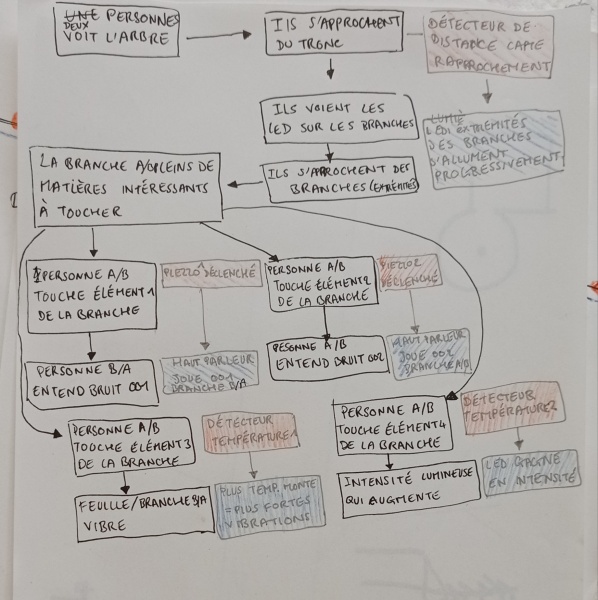 UNE PERSONNES
DEUX
VOIT L'ARBRE
ILS S'APPROCHENT
DU TRONC
DÉTECTEUR DE
DISTANCE CAPTE
RAPPROCHEMENT
ILS VOIENT LES
LED SUR LES BRANCHES
LUMIÈ
LEDs EXTREMITÉS
DES BRANCHES
S'ALLUMENT
PROGRESSIVEMENT
ILS S'APPROCHENT DES
BRANCHES (EXTRÉMITÉS)
LA BRANCHE A/B PLEINS DE
MATIÈRES INTÉRESSANTS
À TOUCHER
PERSONNE A/B
TOUCHE ÉLÉMENT 1
DE LA BRANCHE
PIEZZO 1 DÉCLENCHÉ
PERSONNE A/B
TOUCHE ÉLÉMENT 2
DE LA BRANCHE
PIEZZO 2
DÉCLENCHÉ
PERSONNE B/A
ENTEND BRUIT 001
HAUT PARLEUR
JOUE 001
BRANCHE B/A
PERSONNE A/B
ENTEND BRUIT 002
HAUT PARLEUR
JOUE 002
BRANCHE
PERSONNE A/B
TOUCHE ÉLÉMENT 3
DE LA BRANCHE
DÉTECTEUR
TEMPÉRATURE 1
PERSONNE A/B
TOUCHE ÉLÉMENT 4
DE LA BRANCHE
DÉTECTEUR
TEMPÉRATURE 2
FEUILLE/BRANCHE B/A
VIBRE
PLUS TEMP. MONTE
= PLUS FORTES
VIBRATIONS
INTENSITÉ LUMINEUSE
QUI AUGMENTE
LED GAGNE
EN INTENSITÉ